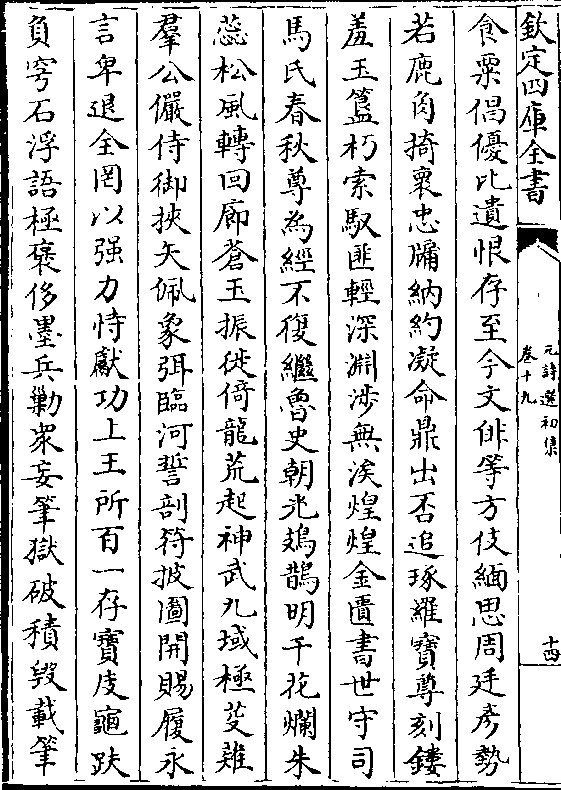 欽定四庫全書
元詩選初集
卷十九
十四
食粟倡優比遺恨存至今文俳等方伎緬思周廷彥勢
若鹿角掎裹忠牖納約凝命鼎出否追琢羅寶尊刻鏤
羞玉簋朽索馭匪輕深淵涉無涘煌煌金匱書世守司
馬氏春秋尊為經不復繼魯史朝光鳷鵲明千花爛朱
蕊松風轉回廊蒼玉振徙倚龍荒起神武九域極芟薙
羣公儼侍御挾矢佩象弭臨河誓剖符披圖開賜履永
言卑退全罔以强力恃獻功上王所百一存寶庋龜趺
負穹石浮語極褒侈墨兵勦衆妄筆獄破積毀載筆